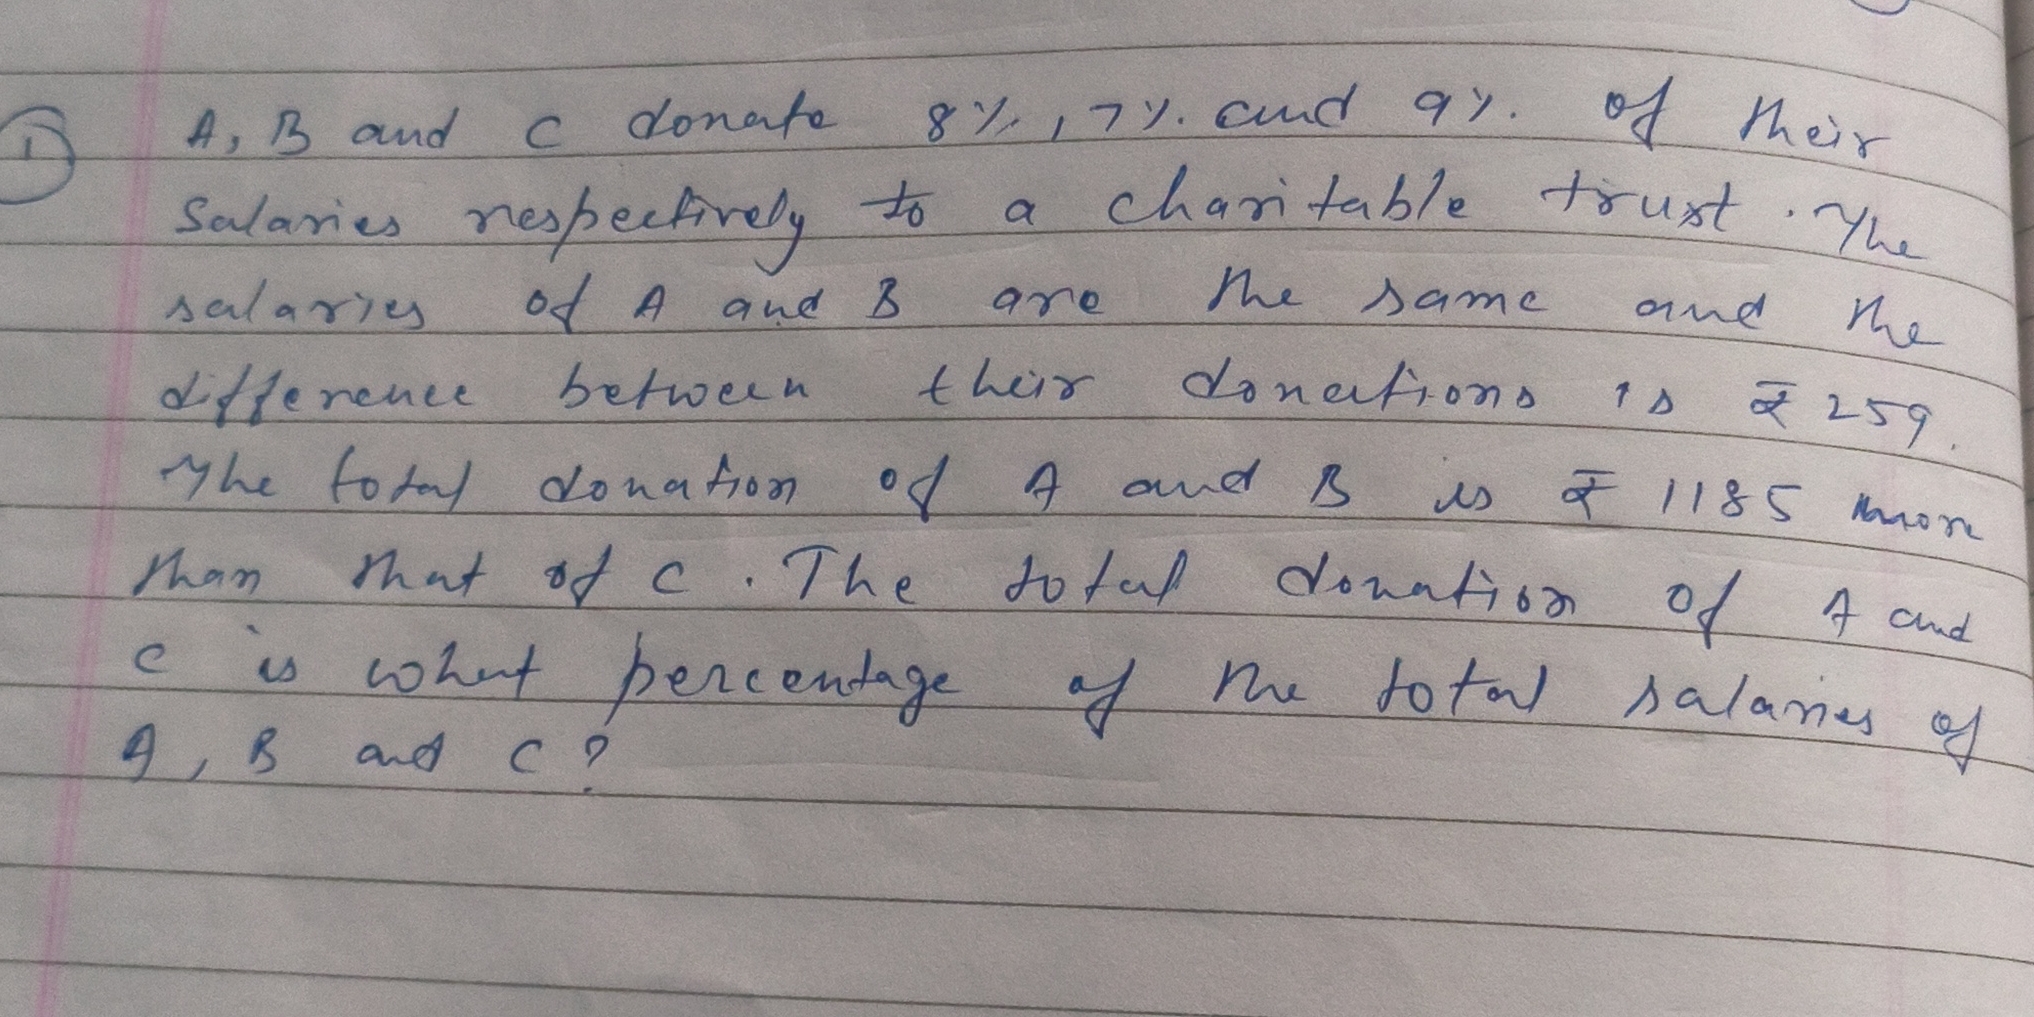 ① A, B and C donate 8%, 7% and 9% of their
Salaries respectively to a charitable trust. The
salaries of A and B are the same and the
difference between their donations is ₹ 259.
The total donation of A and B is ₹ 1185 more
than that of C. The total donation of A and
C is what percentage of the total salaries of
A, B and C?